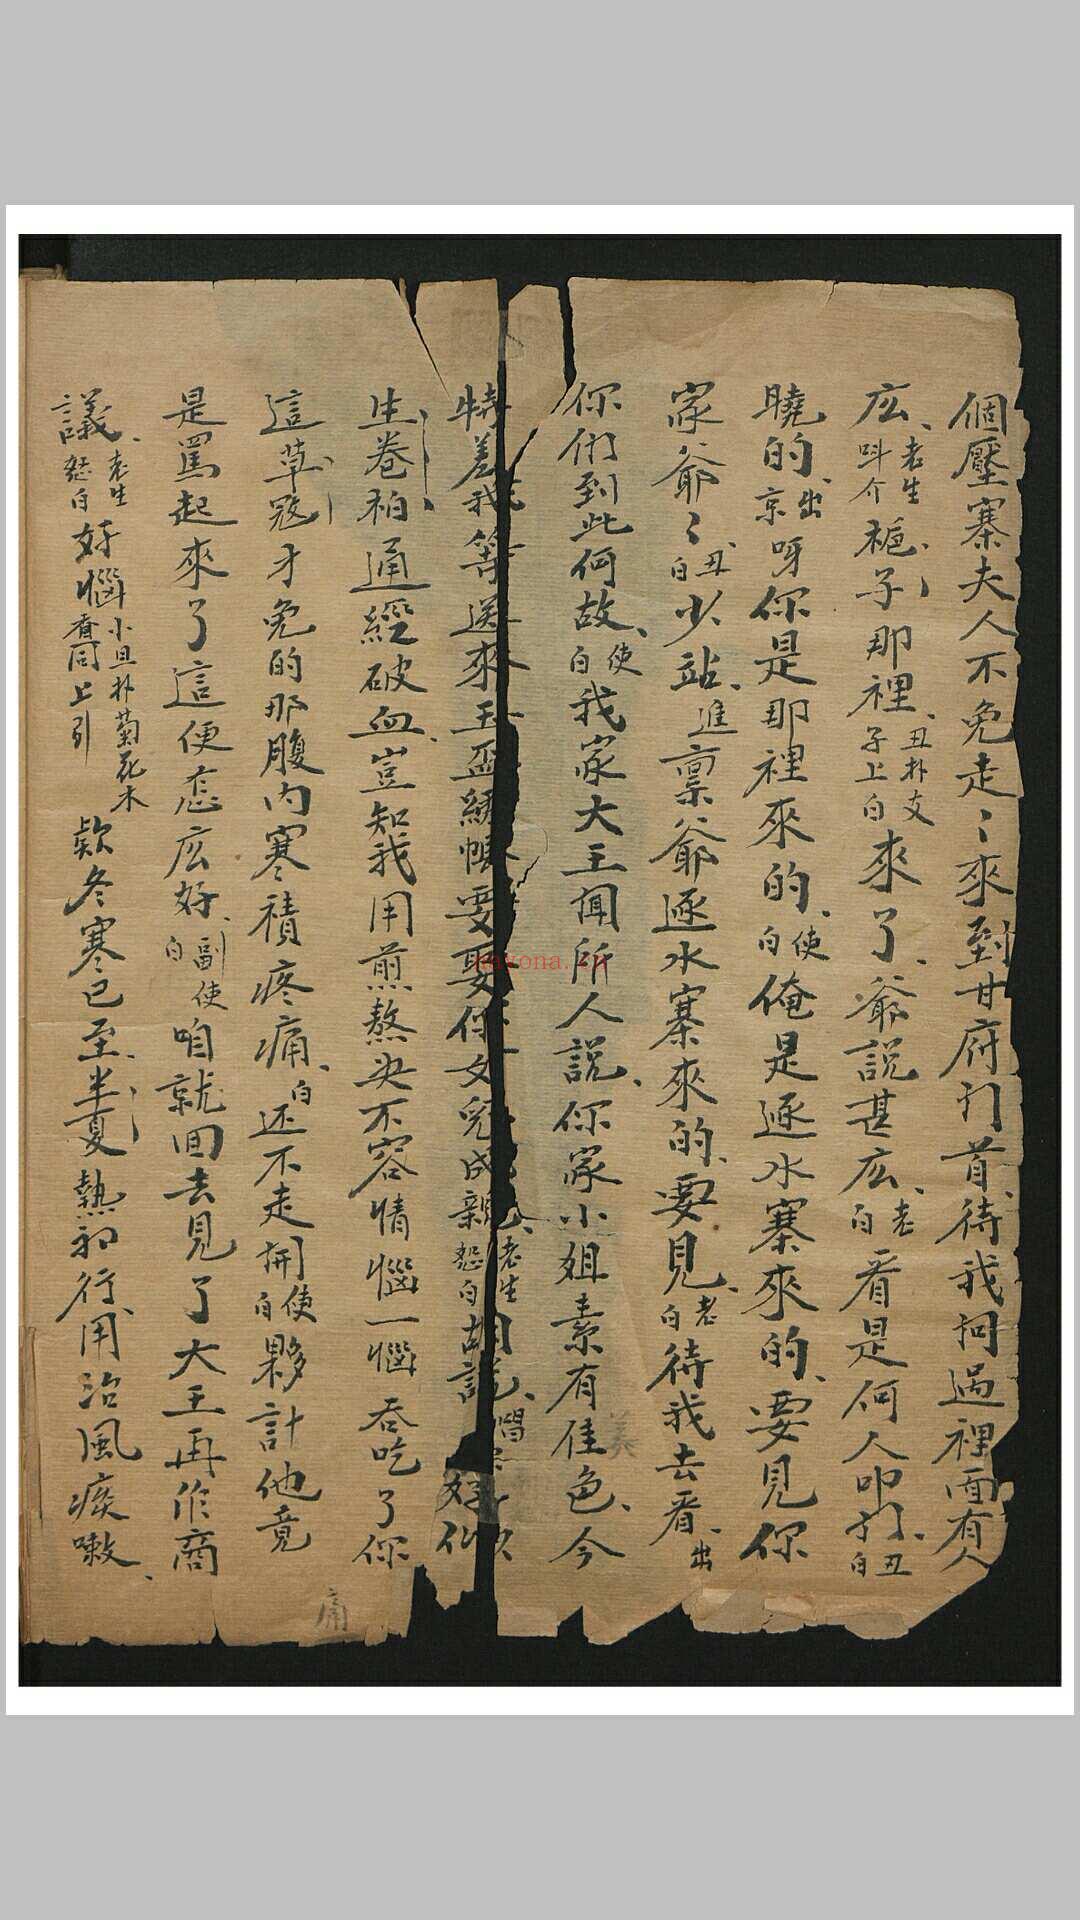 個壓寨夫人不免走〻來到甘府門首待我問過裡面有人
庅老生呌介梔子那裡丑扑支子上白來了爺說甚庅老白看是何人叩打丑白
曉的出京呀你是那裡來的使白俺是逐水寨來的要見你
家爺〻丑白少站進禀爺逐水寨來的要見老白待我去看出
你們到此何故使白我家大王聞听人說你家小姐素有佳色今
特差我等送來玉盃綉帳要娶你女兒成親老生怒白胡說唱好似
生卷柏通經破血豈知我用煎熬决不容情惱一惱吞吃了你
這草寇才免的那腹內寒積疼痛白还不走開使白夥計他竟
是罵起來了這便怎庅好副使白咱就回去見了大王再作商
議老生怒白好惱小旦扑菊花木香同上引欵冬寒已至半夏熱初行用治風痰嗽
痛